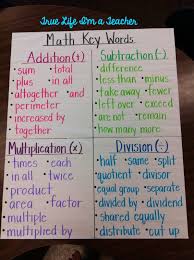 True Life I'm a Teacher
Math Key Words
Addition (+)
• sum • total
• in all • plus
• altogether • and
• perimeter
• increased by
• together
Subtraction (-)
• difference
• less than • minus
• take away • fewer
• left over • exceed
• are not • remain
• how many more
Multiplication (x)
• times • each
• in all • twice
• product
• area • factor
• multiple
• multiplied by
Division (÷)
• half • same • split
• quotient • divisor
• equal group • separate
• divided by • dividend
• shared equally
• distribute • cut up